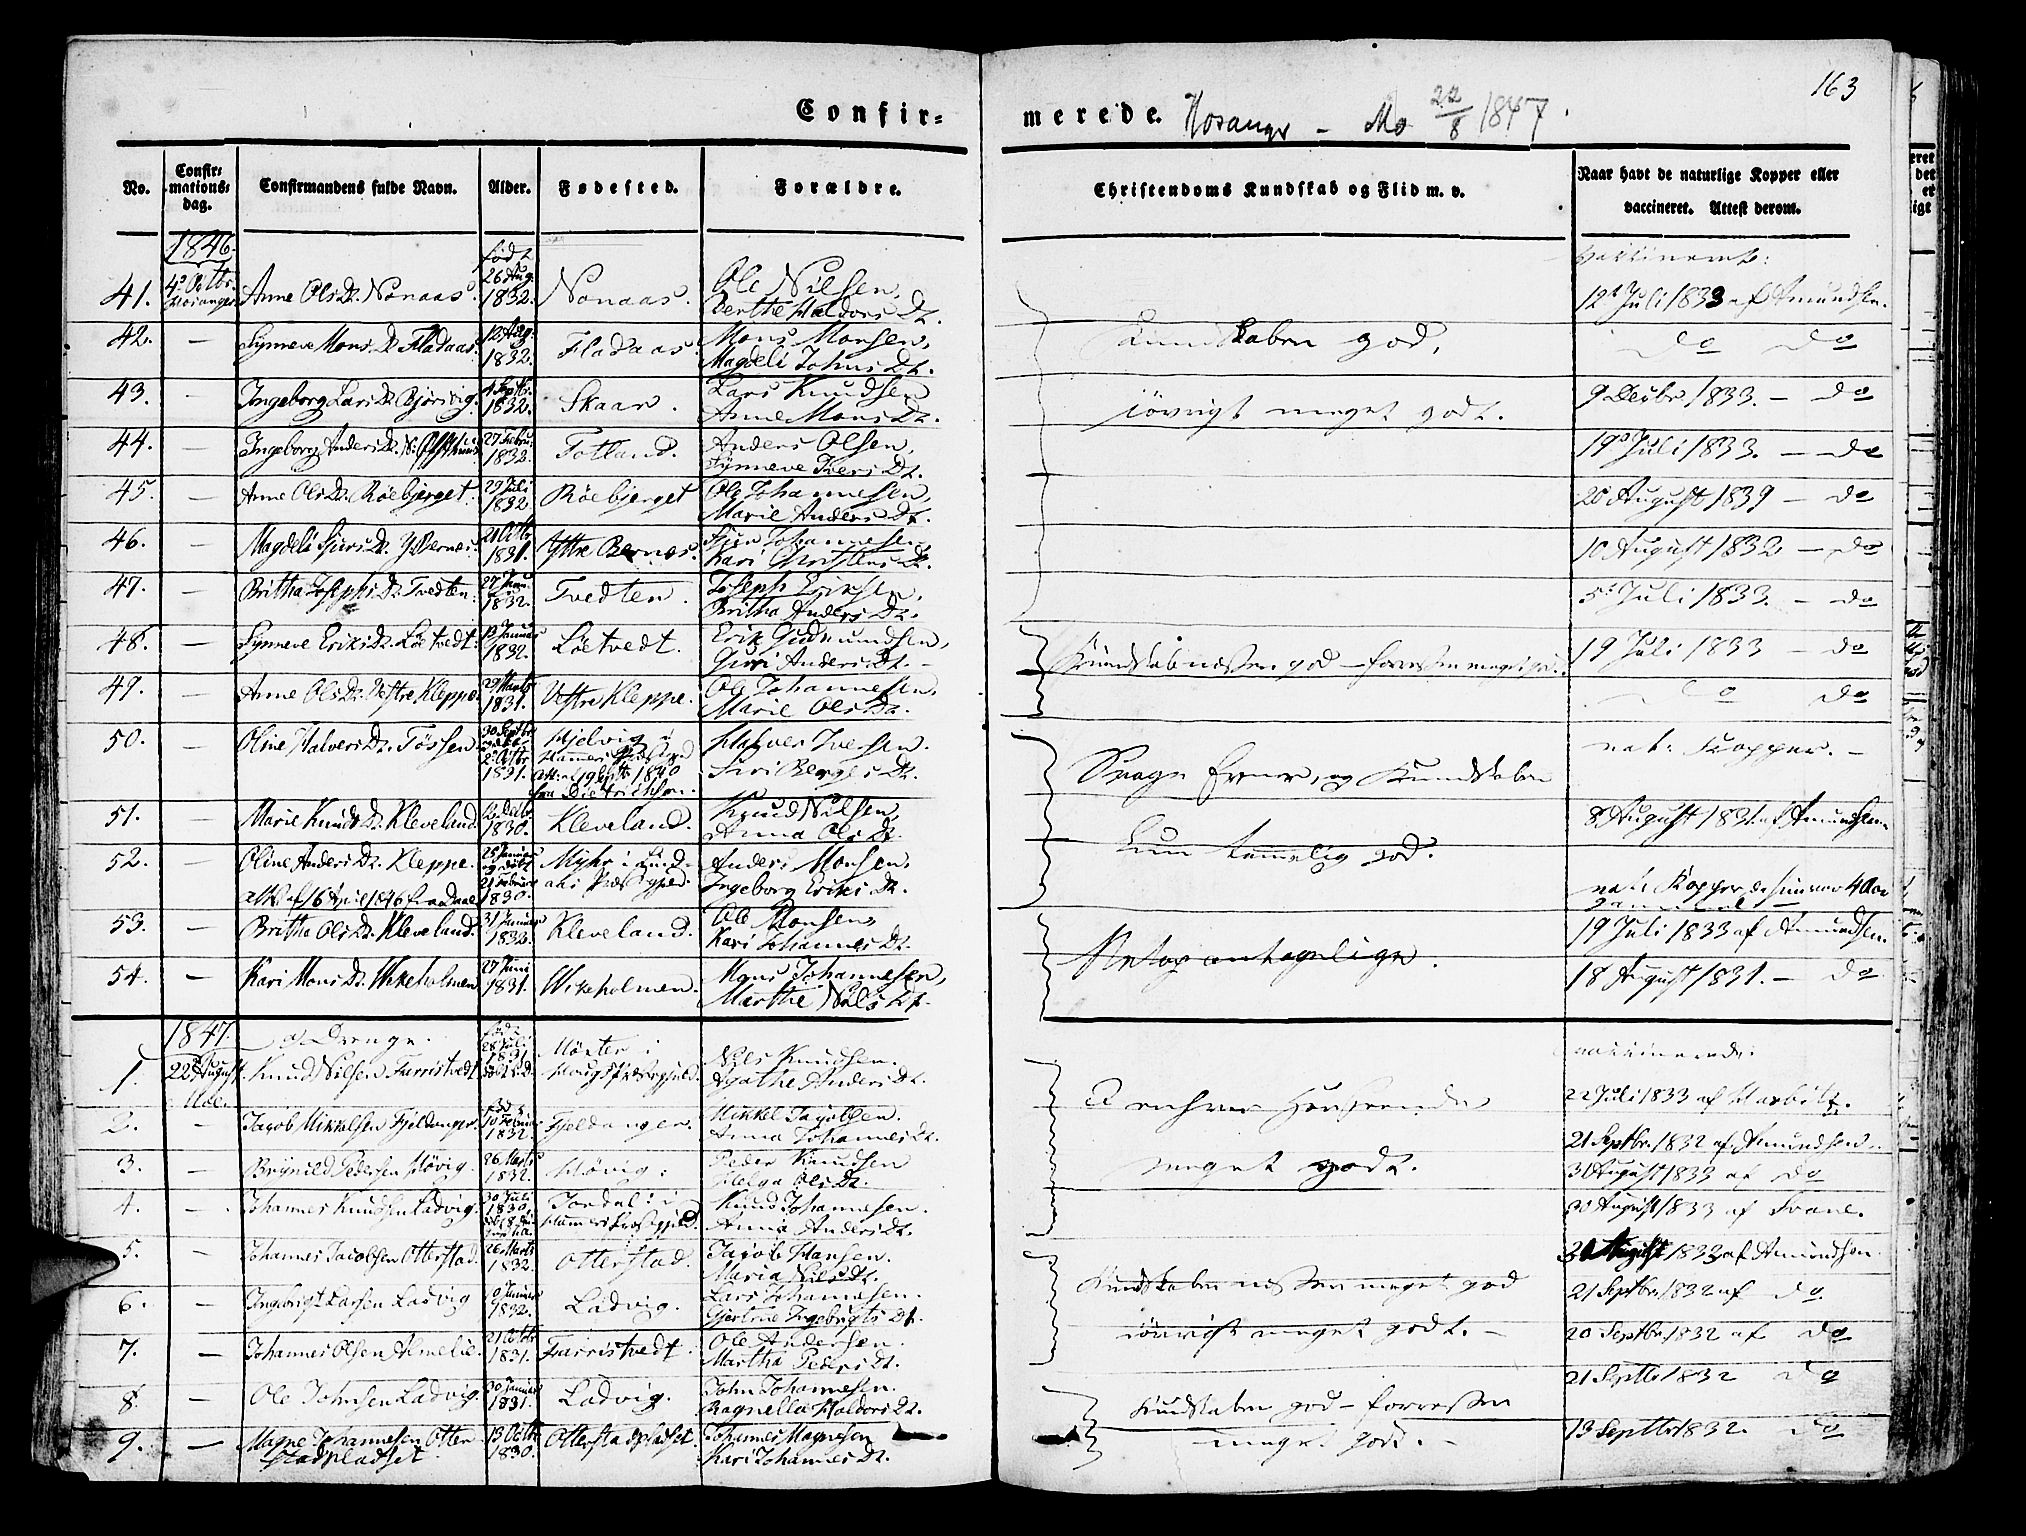 163
Confir=
merede. Hosanger - Mo 22/8 1847.
No.
Confir=
mations=
dag.
Confirmandens fulde Navn.
Alder.
Fødested.
Forældre.
Christendoms Kundskab og Flid m. v.
Naar havt de naturlige Kopper eller
vaccineret. Attest derom.
1846. født vaccinerede:
41. 4de Octbr. Hosanger Anne OlsDr. Nonaas. 26 Aug. 1832. Nonaas. Ole Nilsen, Berthe Haldors Dt. 12 Juli 1833 af Amundsen.
42. — Synneve Mons Dr. Fladaas. 12 Aug. 1832. Fladaas. Mons Monsen, Magdeli Johns Dt. Kundskaben god, do do
43. — Ingeborg LarsDr. Bjørvig. 4 Septbr. 1832. Skaar. Lars Knudsen Anne MonsDt. iøvrigt meget godt. 9 Decbr. 1833. — do
44. — Ingeborg AndersDr. 27 Febru. 1832. Fotland. Anders Olsen, Synneve Ivers Dt. 19 Juli 1833. — do
45. — Anne Ols Dr. Röebjerget. 29 Juli 1832. Röebjerget Ole Johannesen, Marie Anders Dt. 20 August 1839 — do
46. — Magdeli Sjurs Dr. Y. Bernes. 21 Octb. 1831. Yttre Bernes. Sjur Johannesen Kari Christens Dt. 10 August 1832 — do
47. — Britha Josephs Dr. Tvedten. 27 Janu. 1832. Tvedten. Joseph Eriksen, Britha Anders Dt. 5 Juli 1833. — do
48. — Synneve Eriks Dr. Löetvedt. 12 Januar 1832. Löetvedt. Erik Gudmundsen, Guri Anders Dt. — Kundskab næsten god — forresten meget god. 19 Juli 1833 — do
49. — Anne OlsDr. Vestre Kleppe. 29 Marts 1831. Vestre Kleppe. Ole Johannesen. Marie Ols Dt. do do
50. — Oline Halvers Dr. Tössen. 30 Septbr. døbt 2 Octbr. 1831. Hjelvig i Hammers Præstegjeld Att. af 19 Septbr 1840 fra Dietrichson. Halver Iversen. Siri Berges Dt. Svage Evner, og Kundskaben nat: Kopper. —
51. — Marie Knuds Dr. Kleveland. 12 Decbr. 1830. Kleveland. Knud Nilsen, Anna Ols Dt. 8 August 1831. af Amundsen
52. — Oline Anders Dr. Kleppe. att. af 16 April 1846 fra Daae 25 Januar og døbt 21 Februar 1830. Myhr i Lind- aas Præstegjeld. Anders Monsen. Ingeborg Eriks Dt. kun temmelig god. nat: Kopper, da hun var 4 Aar gammel —
53. — Britha Ols Dr. Kleveland. 31 Januar 1832. Kleveland. Ole Monsen, Kari Johannes Dt. 19 Juli 1833 af Amundsen.
54. — Kari Mons Dr. Wikeholmen 27 Juni 1831. Wikeholmen. Mons Johannesen, Marthe Nils Dt. Netop antagelige. 18 August 1831. — do
1847. a, Drenge. født vaccinerede:
1. 22 August Moe. Knud Nilsen Furristvedt 28 Juli 1831. Höxter i Hougs Præstegjeld. Nils Knudsen. Agathe Anders Dt. 22 Juli 1833 af Harbitz.
2. — Jacob Mikkelsen Fjeldanger. født 10 Februar 1832. Fjeldanger. Mikkel Jacobsen. Anna Johannes Dt. I enhver Henseende 21 Septbr. 1832 af Amundsen.
3. — Brynild Pedersen Hövig. 26 Marts 1832. Hövig. Peder Knudsen Helga Ols Dt. meget godt. 31 August 1833 af do
4. — Johannes Knudsen Ladvig. 30 Juli 1830. Jordal i Hammers Præstegjeld. Knud Johannesen. Anna Anders Dt. 30 August 1833 af Frane.
5. Johannes Jacobsen Otterstad. 26 Marts 1832. Otterstad. Jacob Hansen. Maria Nils Dt. August 1833 af Amundsen.
6. — Ingebrigt Larsen Ladvig 9 Januar 1832. Ladvig. Lars Johannesen. Gjertrue Ingebrigts Dt. Kundskaben næsten meget god 21 Septbr. 1832 af do.
7. — Johannes Olsen Almelie. 21 Octbr. 1831. Furristvedt. Ole Andersen. Martha Peders Dt. iøvrigt meget godt. — 20 Septbr. 1832 af do
8. — Ole Johnsen Ladvig. 30 Januar 1831. Ladvig. John Johannesen. Ragnella Haldors Dt. Kundskaben god — forresten 21 Septbr 1832 do
9. — Magne Johannesen Otter- stadpladset. 13 Octbr. 1830. Otterstadpladset. Johannes Magnesen Kari Johannes Dt. meget godt. — 13 Septbr. 1832. do